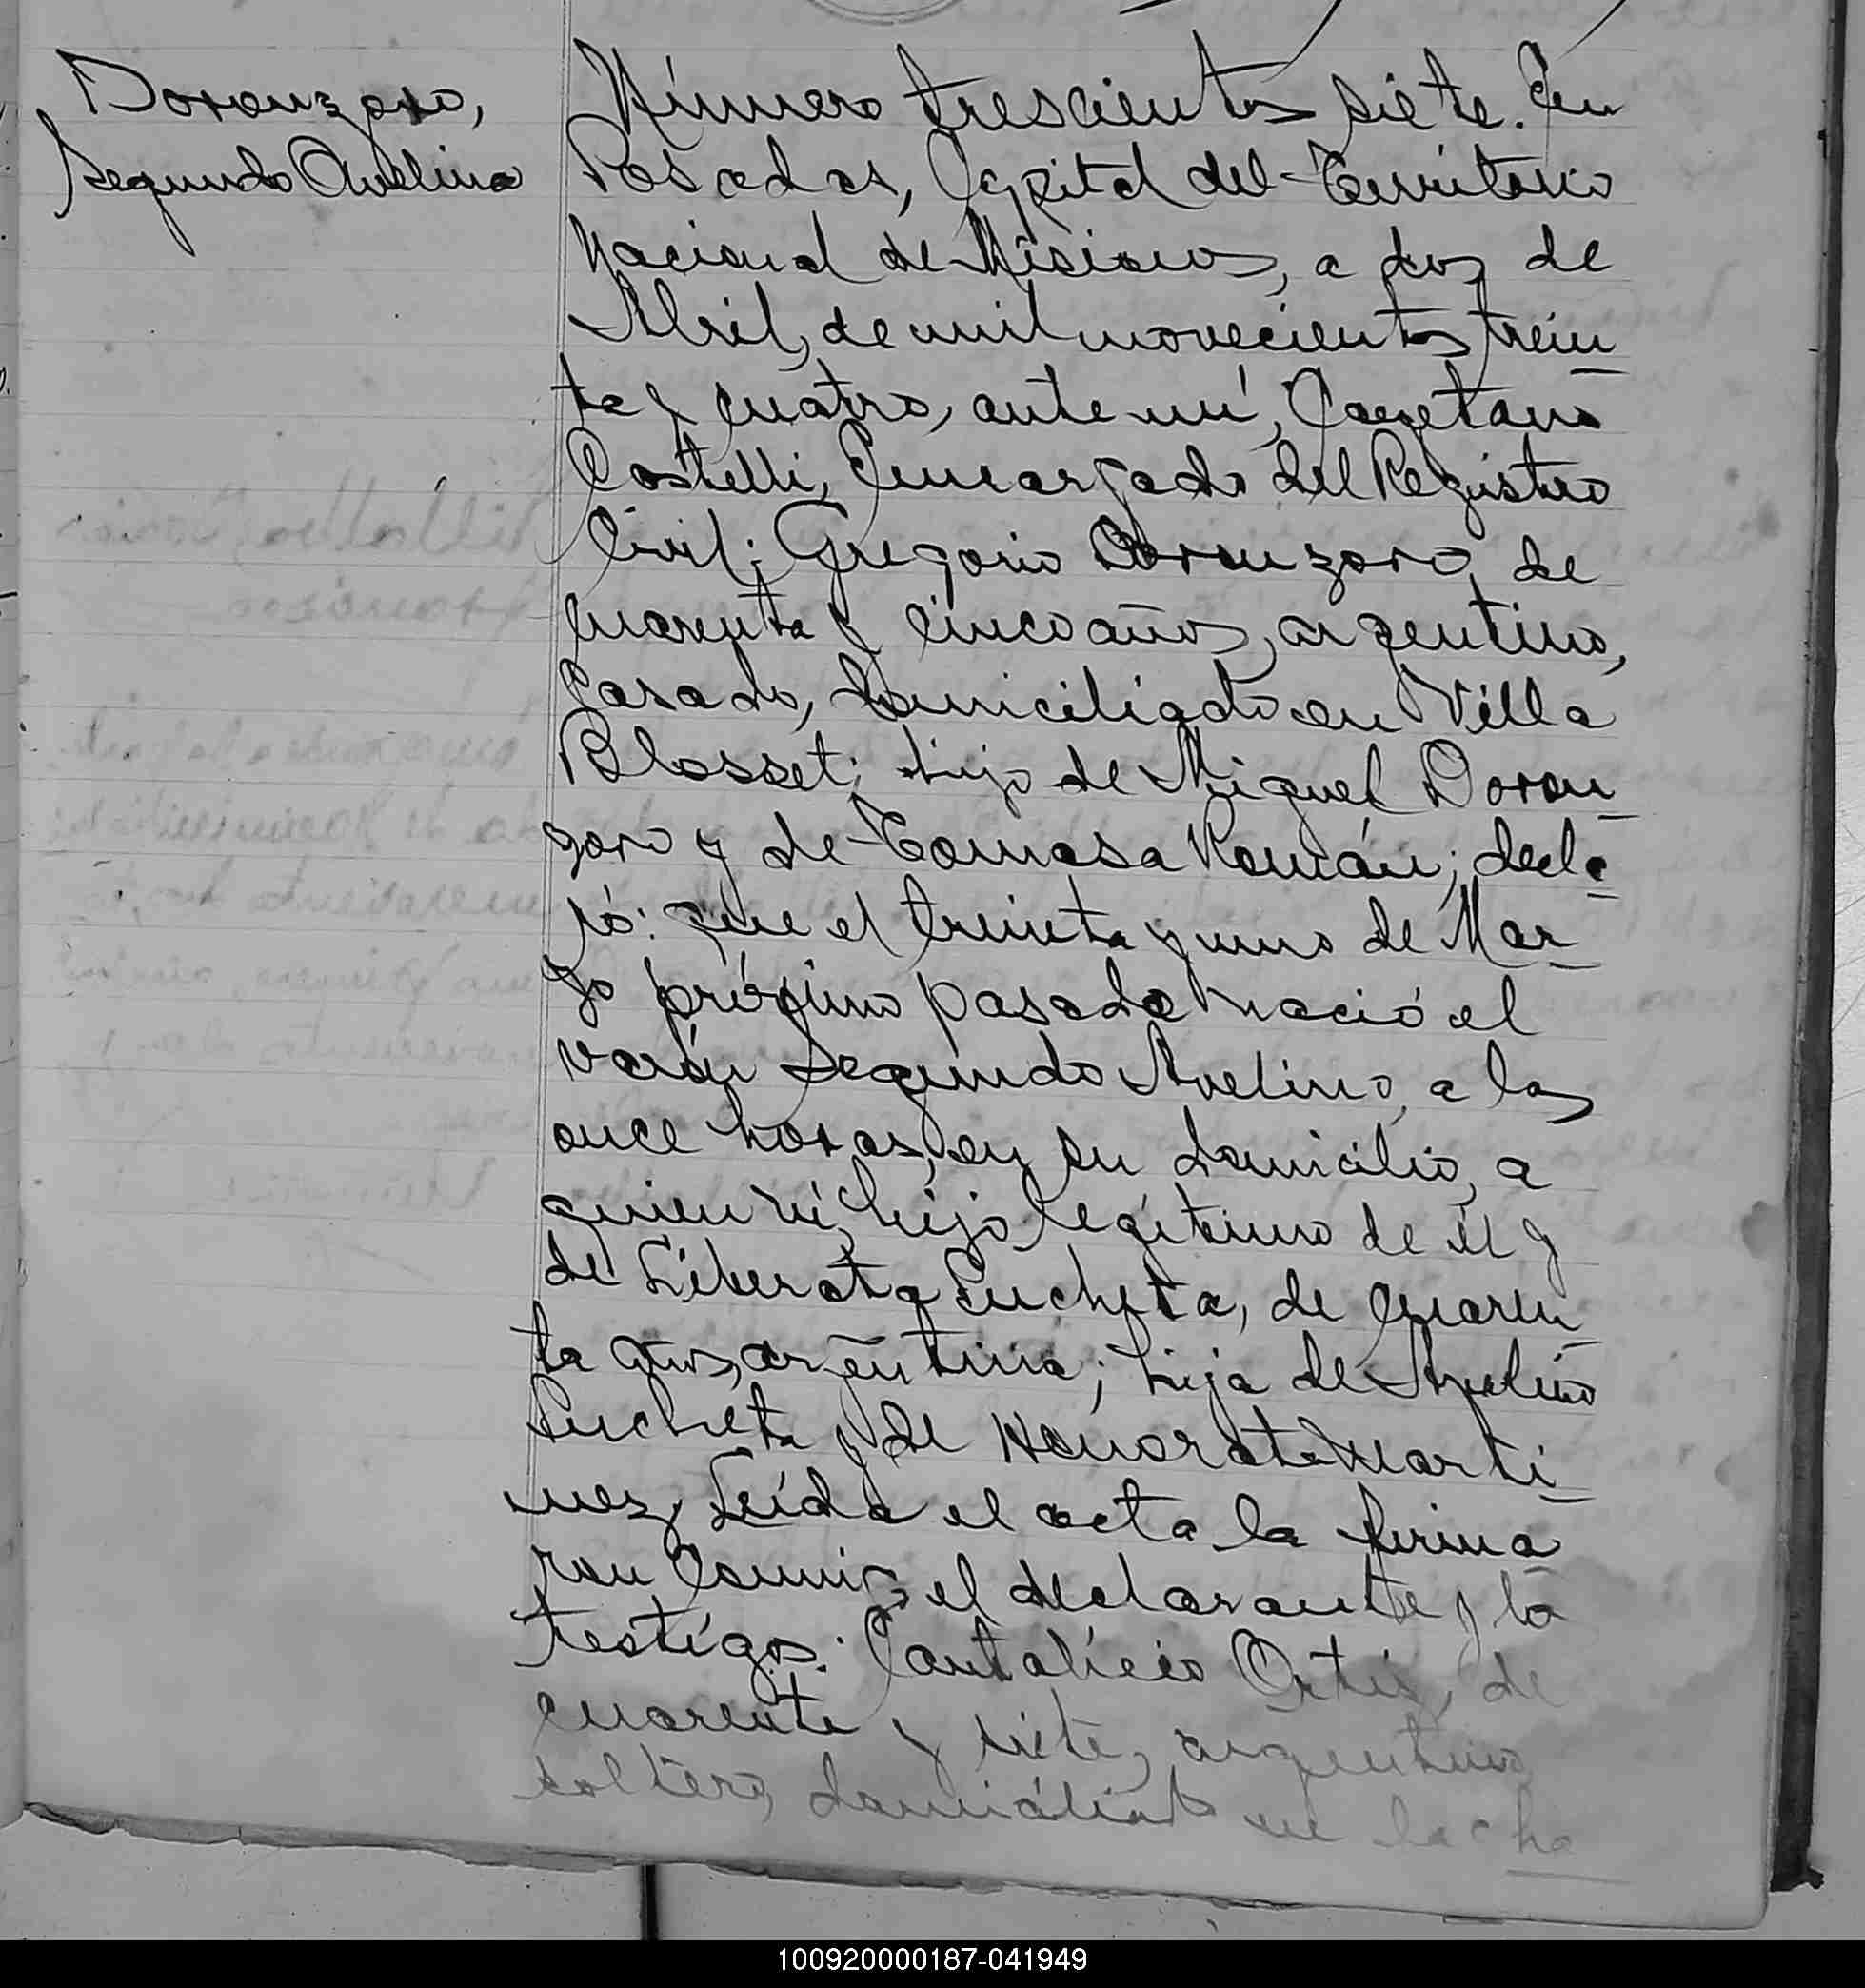 Doronzoro,
Segundo Avelino
Número trescientos siete. En
Posadas, Capital del Territorio
Nacional de Misiones, a dos de
Abril, de mil novecientos trein
ta y cuatro, ante mí, Cayetano
Costelli, Encargado del Registro
Civil; Gregorio Doronzoro, de
cuarenta y cinco años, argentino,
casado, domiciliado en Villa
Blosset; hijo de Miguel Doron
zoro y de Tomasa Román; decla
ró: que el treinta y uno de Mar
zo próximo pasado nació el
varón Segundo Avelino, a las
once horas, en su domicilio, a
quien vi, hijo legítimo de él y
de Liberata Pucheta, de cuaren
ta años, argentina; hija de Avelino
Pucheta y de Honorata Martí
nez. Leída el acta la firma
ron conmigo el declarante y los
testigos: Cantalicio Ortís, de
cuarenta y siete, argentino
soltero, domiciliado en la cha
100920000187-041949